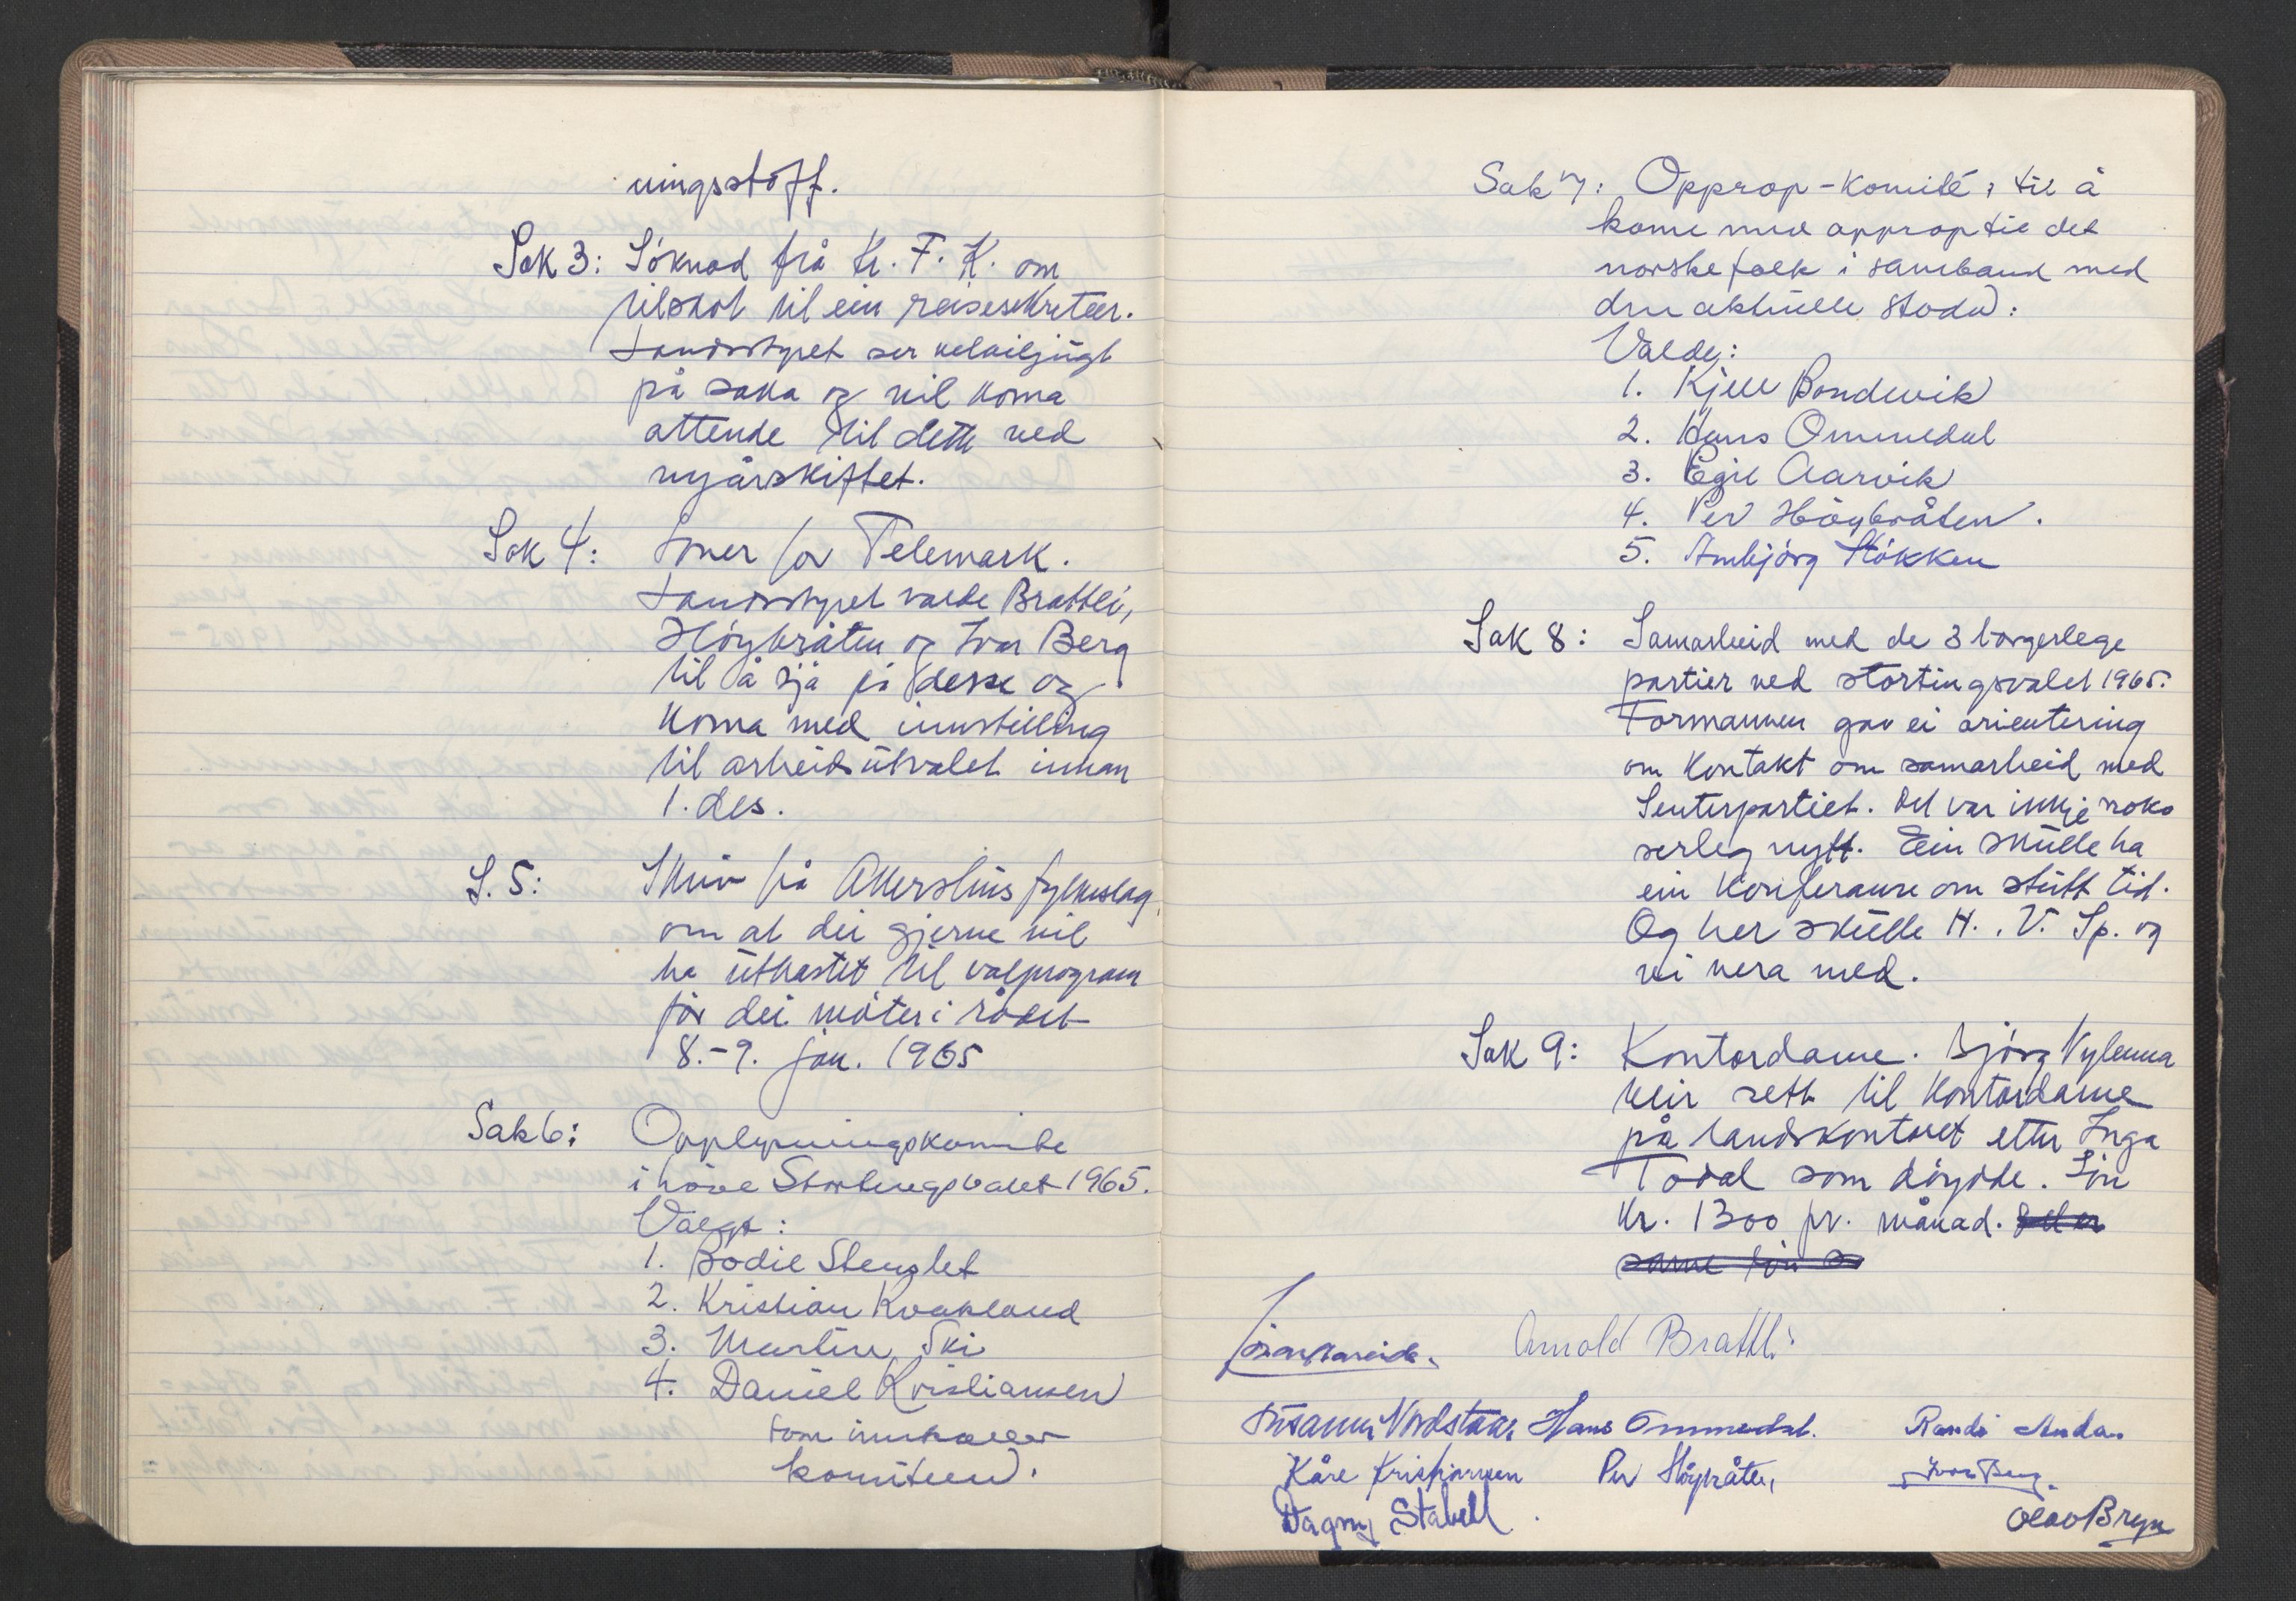 ningsstoff.
Sak 3: Söknad frå Kr. F. K. om
tilskot til ein reisesekretær.
Landsstyret ser velviljugt
på saka og vil koma
attende til dette ved
nyårskiftet.
Sak 4: Löner for Telemark.
Landsstyret valde Brattli,
Höybråten og Ivar Berg
til å sjå på desse og
koma med innstilling
til arbeidsutvalet innan
1. des.
S. 5: Skriv frå Akershus fylkeslag
om at dei gjerne vil
ha utkastet til valprogram
för dei möter i rådet
8.-9. jan. 1965
Sak 6: Opplysningskomite
i höve Stortingsvalet 1965.
Valgt:
1. Bodil Stenslet
2. Kristian Kvakland
3. Martin Ski
4. Daniel Kristiansen
som innkaller
komiteen.
Sak 7: Opprop-komité, til å
kome med opprop til det
norske folk i samband med
den aktuelle stoda:
Valde:
1. Kjell Bondevik
2. Hans Ommedal
3. Egil Aarvik
4. Per Höybråten.
5. Ambjörg Stökken
Sak 8: Samarbeid med de 3 borgerlege
partier ved stortingsvalet 1965.
Formannen gav ei orientering
om kontakt om samarbeid med
Senterpartiet. Det var ikkje noko
serleg nytt. Ein skulle ha
ein konferanse om stutt tid.
Og her skulle H., V. Sp. og
vi vera med.
Sak 9: Kontordame. Björg Nylenna
blir sett til kontordame
på landskontoret etter Inga
Todal som döydde. Lön
kr. 1300 pr. månad. Det er
same lön s
Arnold Brattli
Susanne Nordstaa Hans Ommedal. Randi Anda.
Kåre Kristiansen Per Höybråten, Ivar Berg.
Dagny Stabell. Olav Bryn